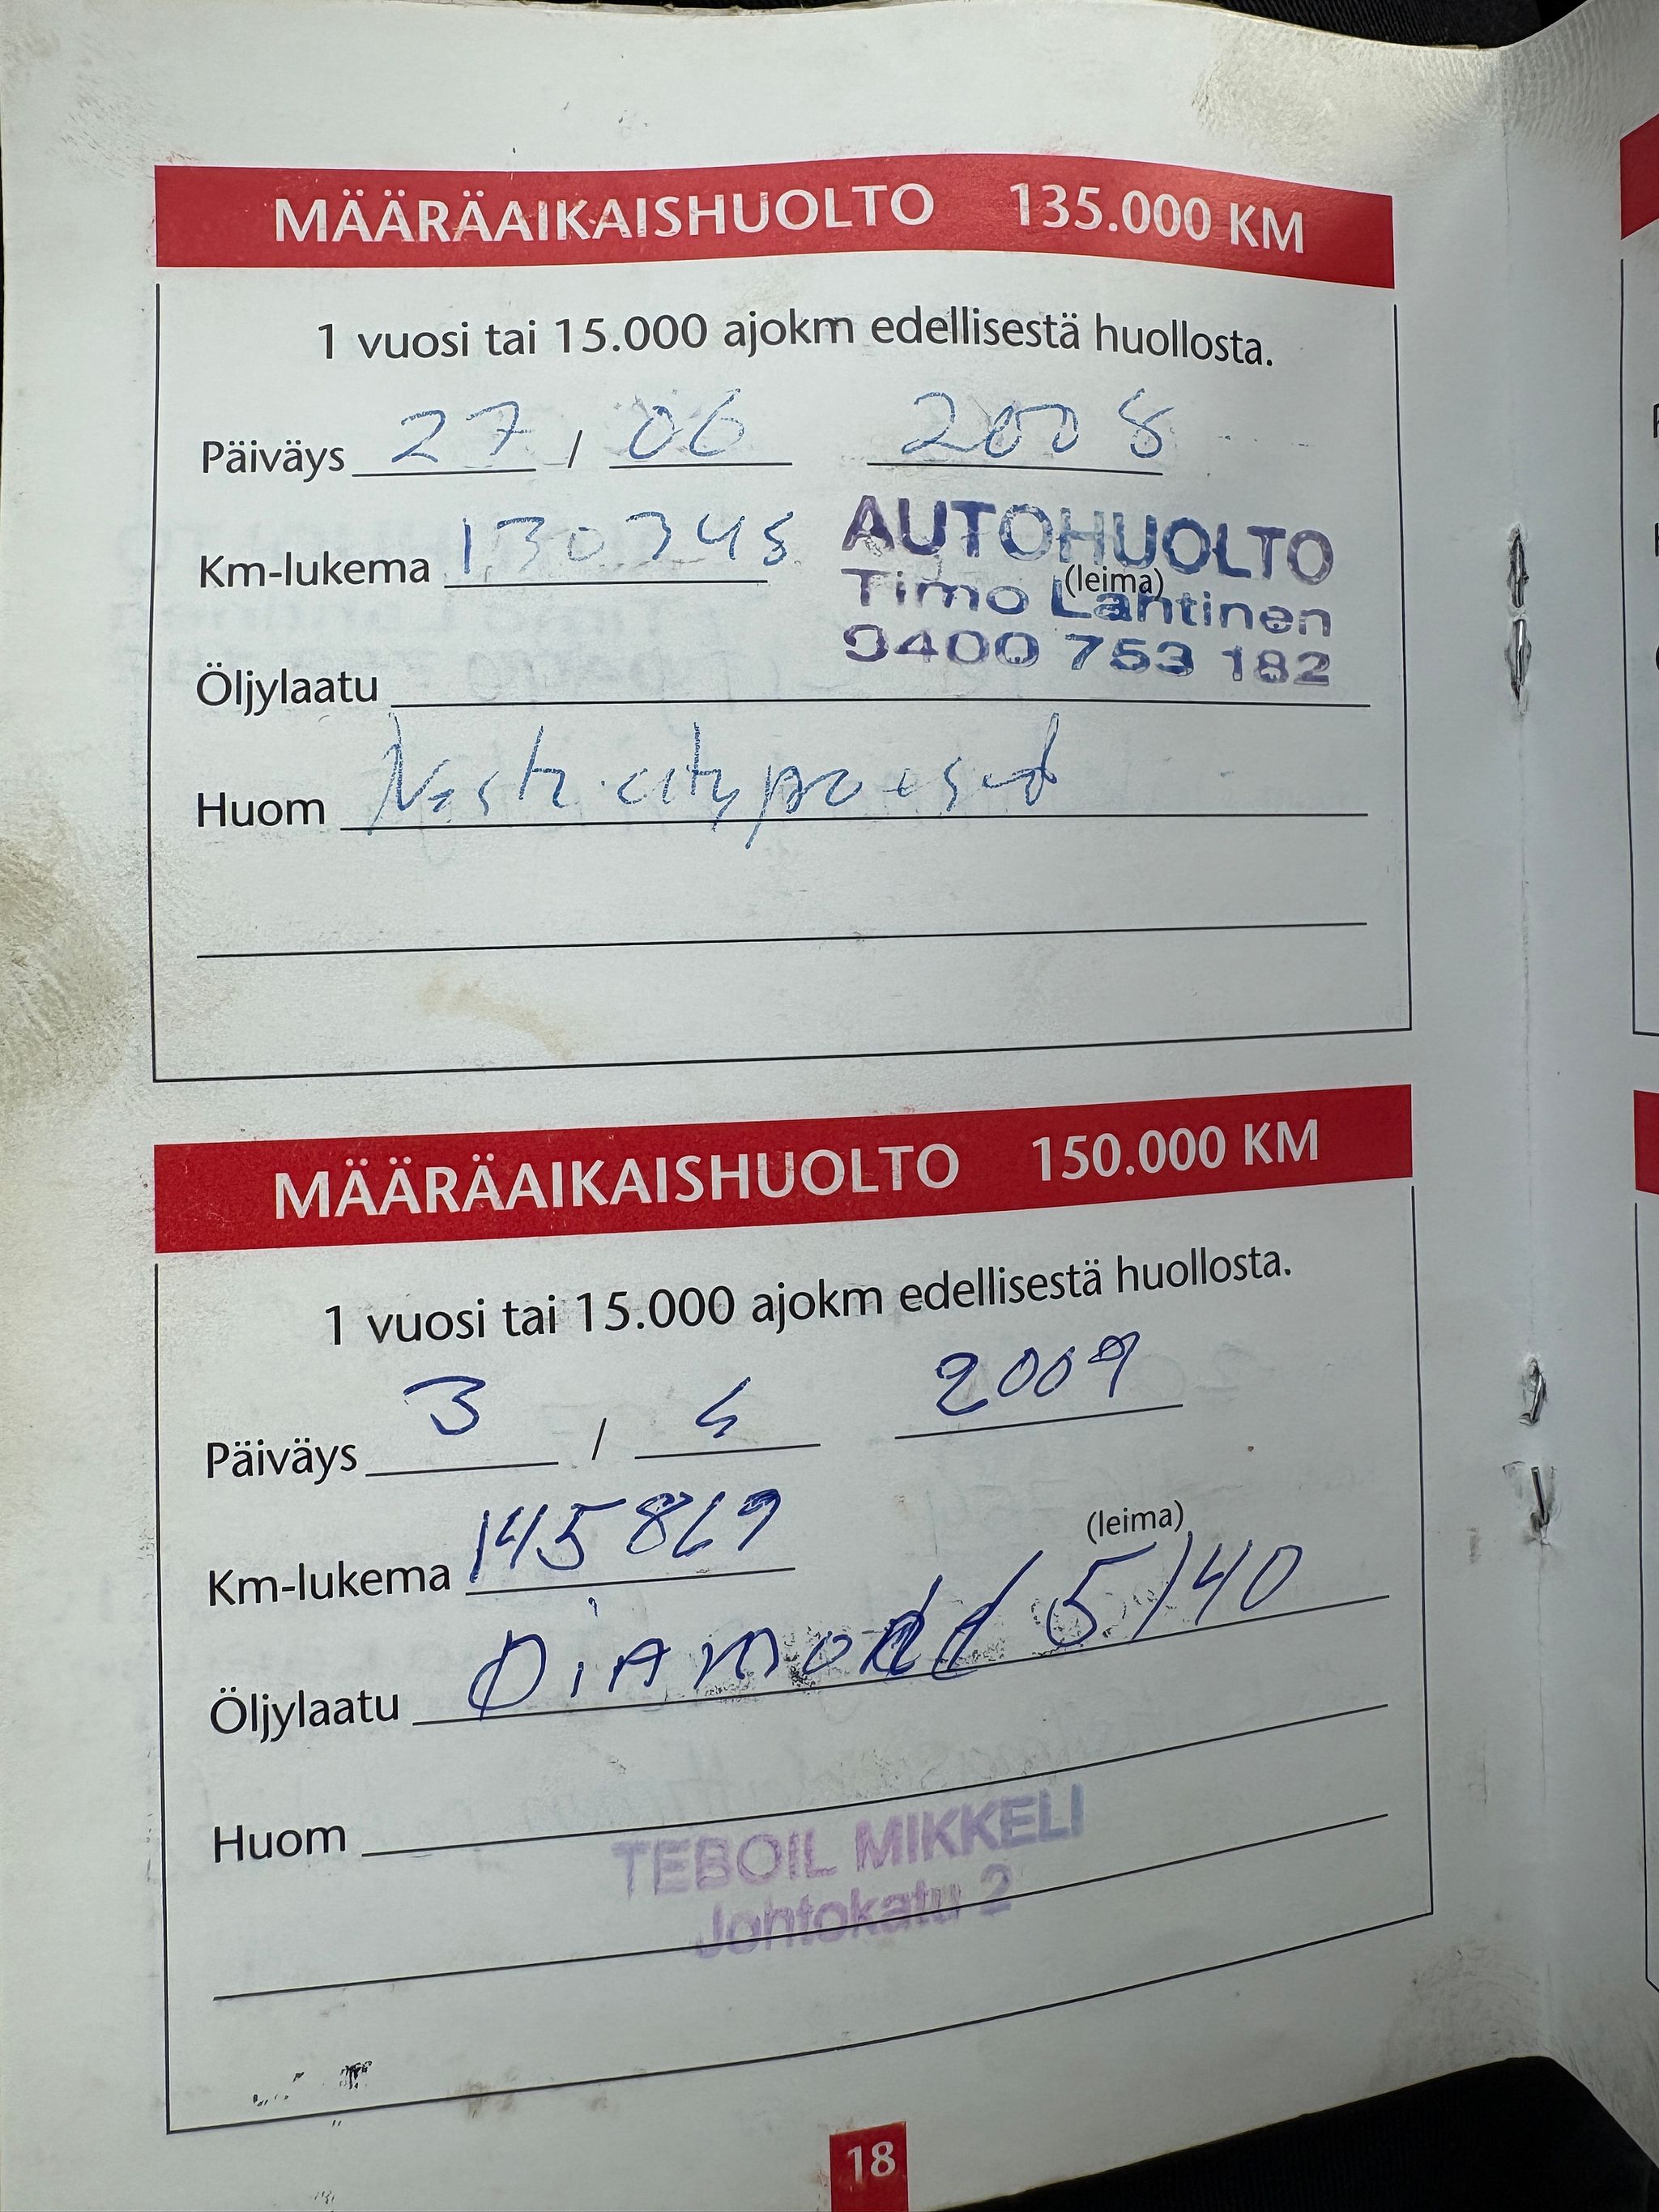 MÄÄRÄAIKAISHUOLTO 135.000 KM
1 vuosi tai 15.000 ajokm edellisestä huollosta.
Päiväys 27 / 06 2008
Km-lukema 130345
AUTOHUOLTO
(leima)
Timo Lahtinen
0400 753 182
Öljylaatu
Huom Neste city pro
MÄÄRÄAIKAISHUOLTO 150.000 KM
1 vuosi tai 15.000 ajokm edellisestä huollosta.
Päiväys 3 / 4 2009
Km-lukema 145869
(leima)
Öljylaatu DiAmond 5/40
Huom
TEBOIL MIKKELI
Johtokatu 2
18